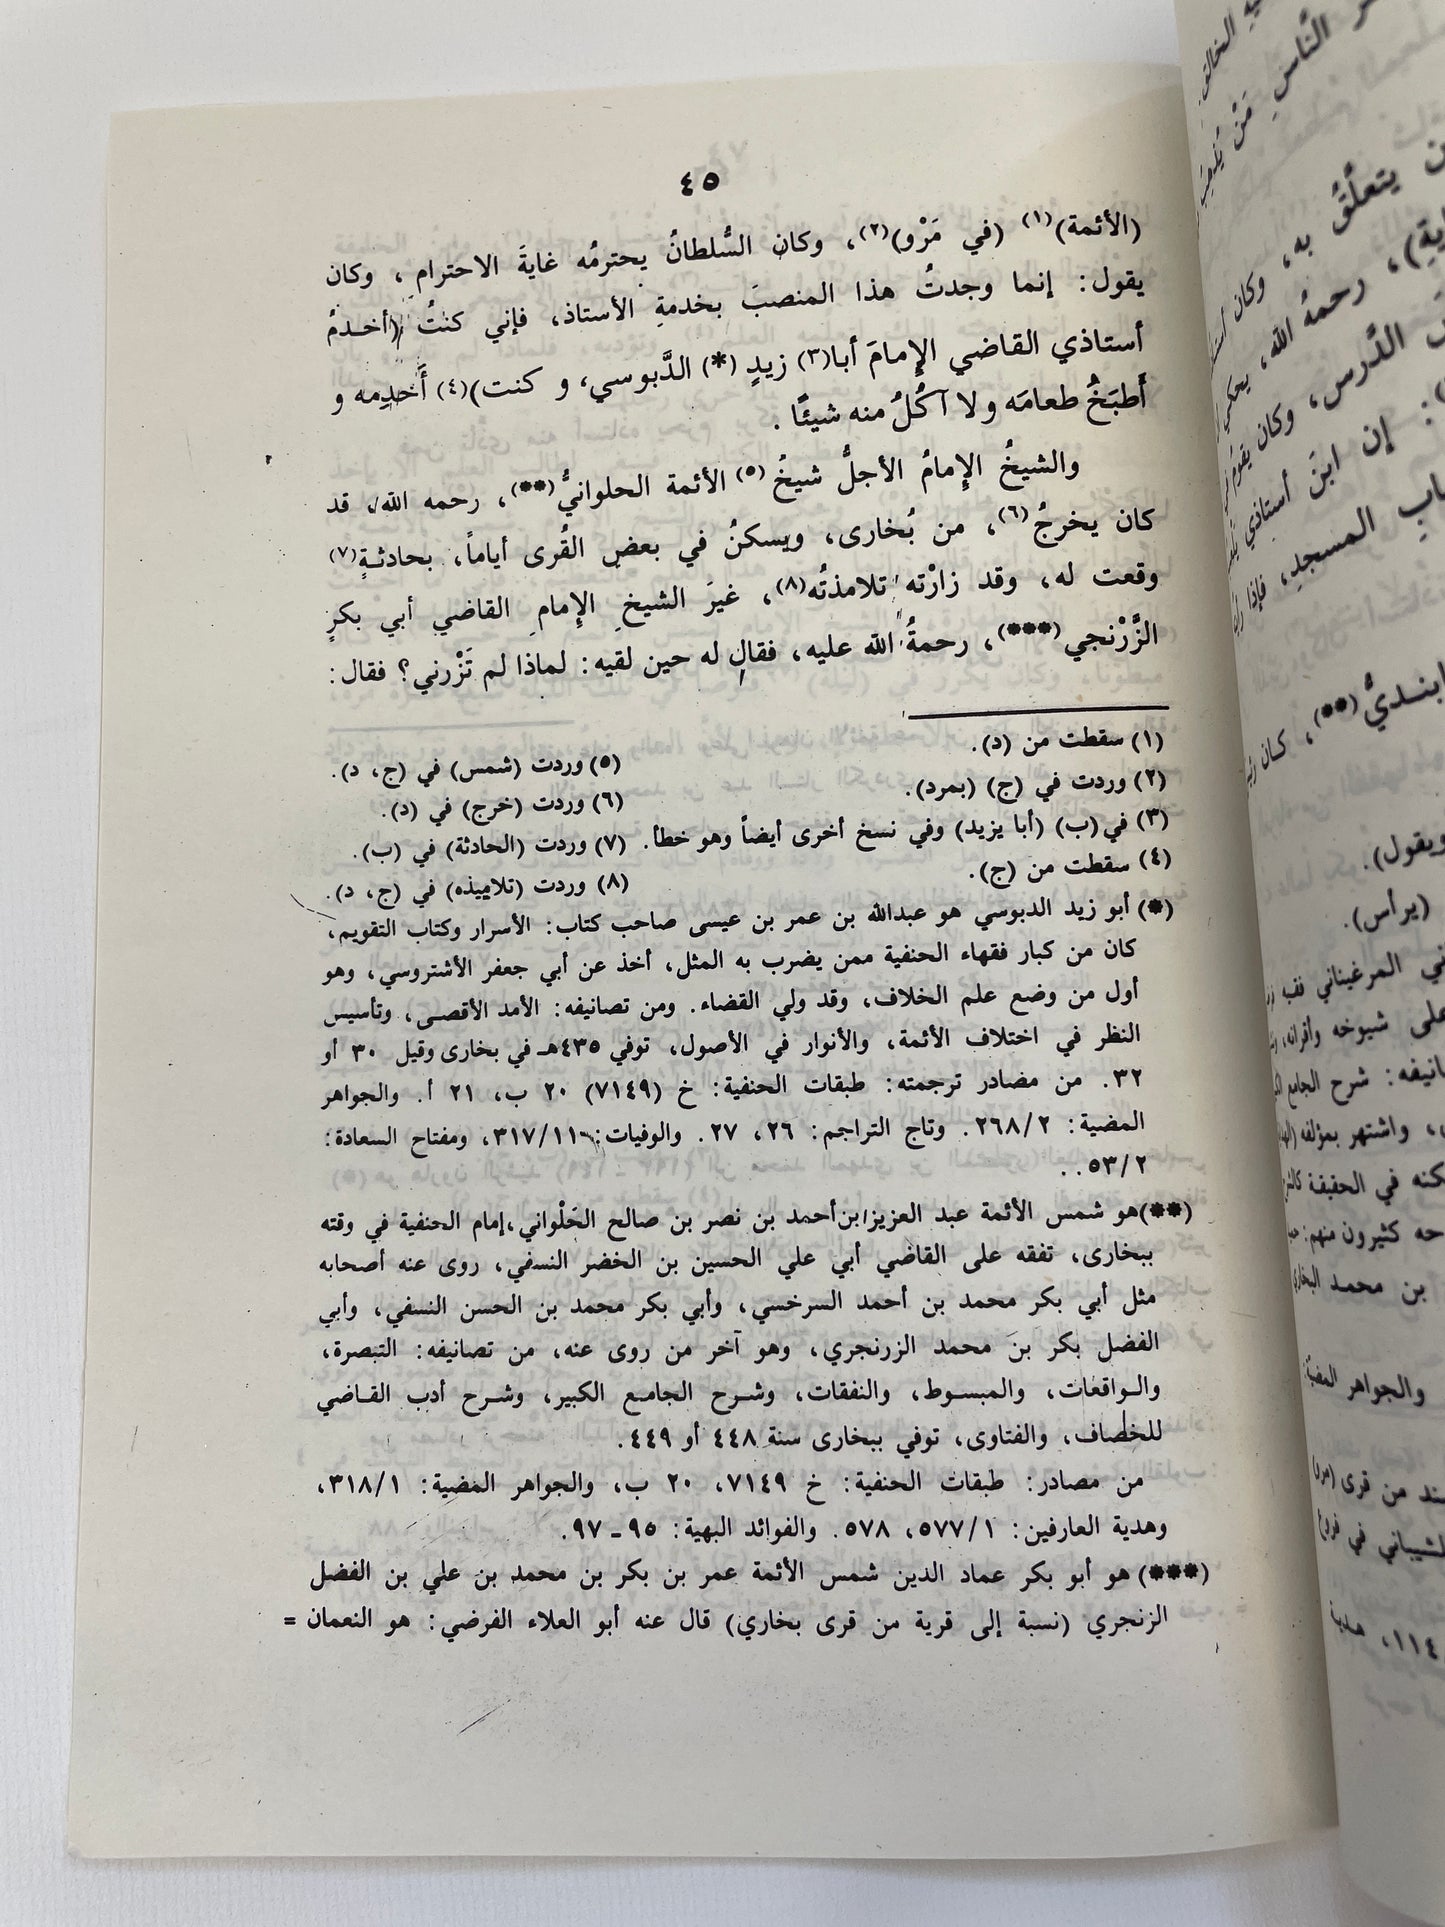 ٤٥
(الأئمة)(١) (في مَرْو)(٢)، وكان السُّلطانُ يحترمُه غايةَ الاحترامِ، وكان
يقول: إنما وجدتُ هذا المنصبَ بخدمةِ الأستاذ، فإني كنتُ (أخدمُ
أستاذي القاضي الإمامَ أبا(٣) زيدٍ (*) الدَّبوسي، و كنت)(٤) أَخدِمه و
أَطبَخُ طعامَه ولا آكُلُ منه شيئًا.
والشيخُ الإمامُ الأجلُّ شيخُ (٥) الأئمة الحلوانيُّ(**)، رحمه الله، قد
كان يخرجُ(٦)، من بُخارى، ويسكنُ في بعضِ القُرى أياماً، بحادثةٍ(٧)
وقعت له، وقد زارْته تلامذتُه(٨)، غيرَ الشيخِ الإمامِ القاضي أبي بكرٍ
الزَّرْنجي(***)، رحمةُ الله عليه، فقال له حين لقيه: لماذا لم تَزْرني؟ فقال:
(١) سقطت من (د).
(٢) وردت في (ج) (بمرد).
(٣) في (ب) (أبا يزيد) وفي نسخ أخرى أيضاً وهو خطأ.
(٤) سقطت من (ج).
(٥) وردت (شمس) في (ج، د).
(٦) وردت (خرج) في (د).
(٧) وردت (الحادثة) في (ب).
(٨) وردت (تلاميذه) في (ج، د).
(*) أبو زيد الدبوسي هو عبدالله بن عمر بن عيسى صاحب كتاب: الأسرار وكتاب التقويم،
كان من كبار فقهاء الحنفية ممن يضرب به المثل، أخذ عن أبي جعفر الأشتروسي، وهو
أول من وضع علم الخلاف، وقد ولي القضاء. ومن تصانيفه: الأمد الأقصى، وتأسيس
النظر في اختلاف الأئمة، والأنوار في الأصول، توفي ٤٣٥هـ في بخارى وقيل ٣٠ أو
٣٢. من مصادر ترجمته: طبقات الحنفية: خ (٧١٤٩) ٢٠ ب، ٢١ أ. والجواهر
المضية: ٢٦٨/٢. وتاج التراجم: ٢٦، ٢٧. والوفيات: ٣١٧/١١، ومفتاح السعادة:
٥٣/٢..
(**)هو شمس الأئمة عبد العزيز بن أحمد بن نصر بن صالح الحَلْواني،إمام الحنفية في وقته
ببخارى، تفقه على القاضي أبي علي الحسين بن الخضر النسفي، روى عنه أصحابه
مثل أبي بكر محمد بن أحمد السرخسي، وأبي بكر محمد بن الحسن النسفي، وأبي
الفضل بكر بن محمد الزرنجري، وهو آخر من روى عنه، من تصانيفه: التبصرة،
والواقعات، والمبسوط، والنفقات، وشرح الجامع الكبير، وشرح أدب القاضي
للخصاف، والفتاوى، توفي ببخارى سنة ٤٤٨ أو ٤٤٩.
من مصادر: طبقات الحنفية: خ ٧١٤٩، ٢٠ ب، والجواهر المضية: ٣١٨/١،
وهدية العارفين: ٥٧٧/١، ٥٧٨. والفوائد البهية: ٩٥ـ٩٧.
(***) هو أبو بكر عماد الدين شمس الأئمة عمر بن بكر بن محمد بن علي بن الفضل
الزنجري (نسبة إلى قرية من قرى بخاري) قال عنه أبو العلاء الفرضي: هو النعمان =
الخالق
النَّاسِ مَنْ
يتعلَّقُ به، وكان
رحمهُ الله، يحكي
الدَّرس، وكان يقوم
إن ابنَ أستاذي
المسجدِ، فإذا
(**)، كان
ويقول).
(يرأس).
المرغيناني فقيه
على شيوخه وأقرانه،
شرح الجامع
واشتهر بمؤلفه
في الحقيقة
كثيرون منهم:
بن محمد البخاري
والجواهر المضية:
من قرى (مرو)
الشيباني في فروع
١١٤، هدية